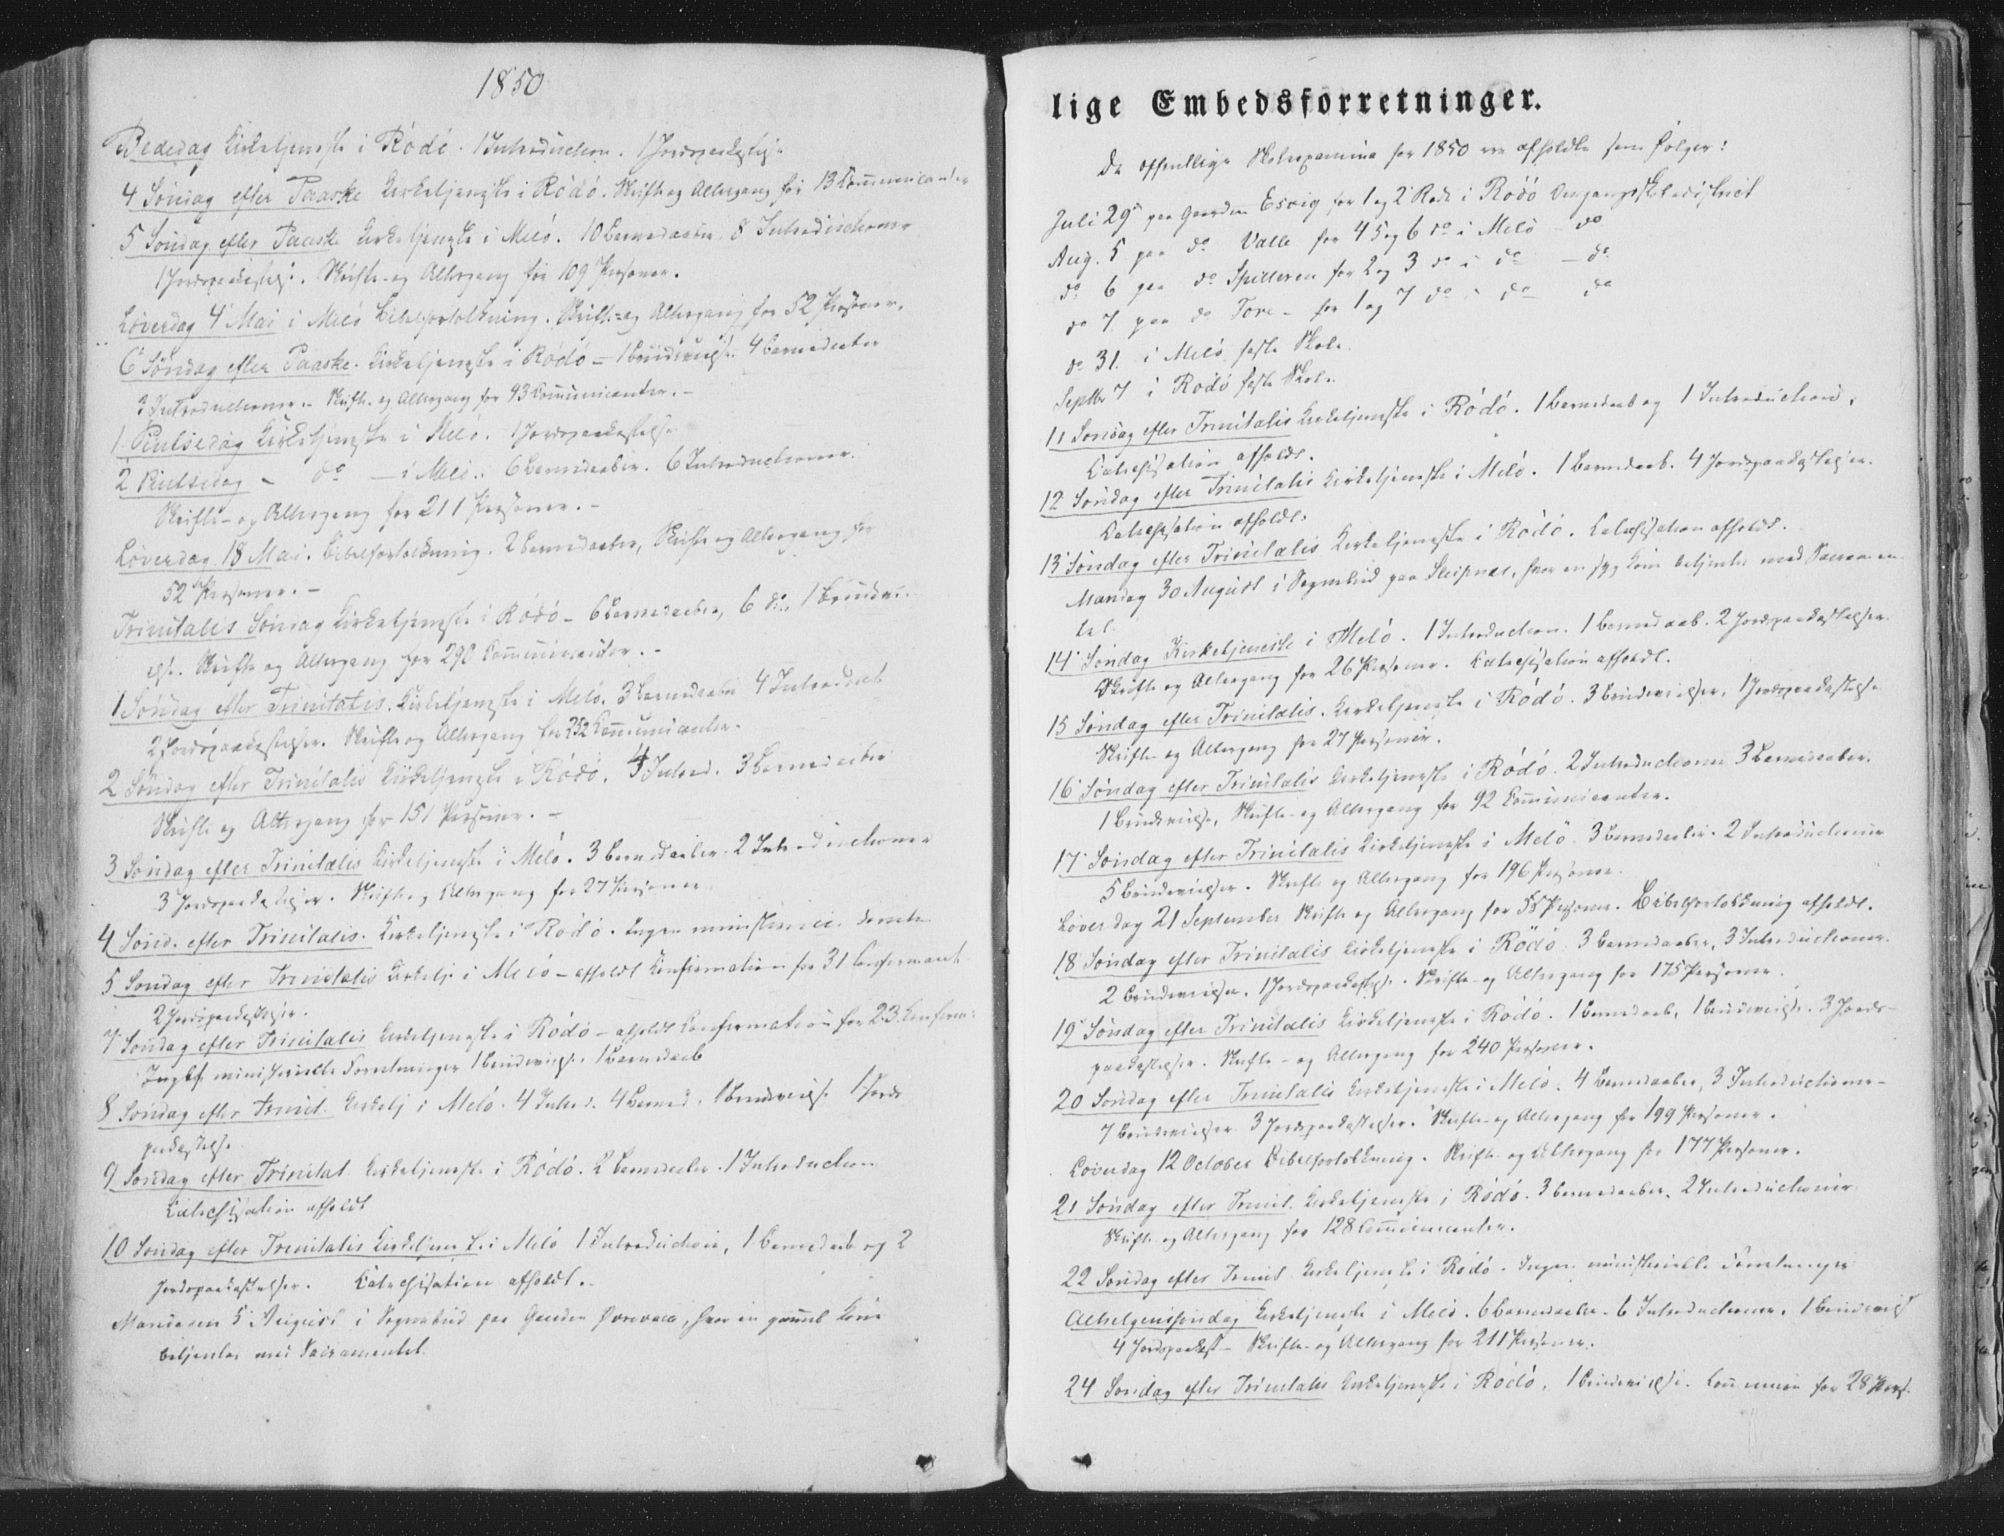 1850
Bededag Kirketjeneste i Rödö. 1 Introduction. 1 Jordpaakastelse
4 Söndag efter Paaske Kirketjeneste i Rödö. Skrifte og Altergang for 13 Communicanter
5 Söndag efter Paaske Kirketjeneste i Melö. 10 Barnedaaber 8 Introductioner
1 Jordpaakastelse. Skrifte- og Altergang for 109 Personer.
Löverdag 4 Mai i Melö Bibelfortolkning. Skrifte- og Altergang for 52 Personer.
6 Söndag efter Paaske. Kirketjeneste i Rödö - 1 Brudevielse. 4 Barnedaaber
3 Introductioner. - Skrifte- og Altergang for 93 Communicanter. -
1. Pintsedag Kirketjeneste i Melö. 1 Jordpaakastelse
2 Pintsedag - do - i Melö. 6 Barnedaaber. 6 Introductioner.
Skrifte- og Altergang for 211 Personer. -
Löverdag 18 Mai. Bibelfortolkning. 2 Barnedaaber, Skrifte og Altergang for
52 Personer. -
Trinitatis Söndag Kirketjeneste i Rödö - 6 Barnedaaber, 6 1 Brudevi-
else. Skrifte og Altergang for 290 Communicanter. -
1 Söndag efter Trinitatis. Kirketjeneste i Melö. 3 Barnedaaber 4 Introduct
2 Jordpaakastelser. Skrifte og Altergang for 252 Communicanter.
2 Söndag efter Trinitatis Kirketjeneste i Rödö. 4 Introd. 3 Barnedaaber
Skrifte og Altergang for 151 Personer. -
3 Söndag efter Trinitatis Kirketjeneste i Melö. 3 Barnedaaber. 2 Introductioner
3 Jordpaakastelser. Skrifte og Altergang for 27 Personer
4 Sönd. efter Trinitatis. Kirketjeneste i Rödö. Ingen
5 Söndag efter Trinitatis Kirketj i Melö - afholdt Confirmation for 31 Confirmant
2 Jordpaakastelser.
7 Söndag efter Trinitatis Kirketjeneste i Rödö - afholdt Confirmation for 23 Confirm:
ministerielle Forretninger 1 Brudevielse. 1 Barnedaab
8 Söndag efter Trinit. Kirketj i Melö. 4 Introd. 4 Barned. 1 Brudevielse 1 Jord-
paakastelse
9 Söndag efter Trinitat Kirketjeneste i Rödö. 2 Barnedaaber. 1 Introduction
Catechisation afholdt
10 Söndag efter Trinitatis Kirketjeneste i Melö 1 Introduction, 1 Barnedaab og 2
Jordpaakastelser. Catechisation afholdt. -
Mandagen 5 August i Sognebud paa Gaarden hvor en gammel Kone
betjentes med Sacramentet.
lige Embedsforretninger.
De offentlige Skoleexamina for 1850 ere afholdte som fölger:
Juli 29 paa Gaarden Esvig for 1 og 2 Rode i Rödö Omgangsskoledistrict
Aug. 5 paa do Valle for 4 5 og 6 do i Melö - do
do 6 paa do Spilderen for 2 og 3 do i do - do
do 7 paa do Tore - for 1 og 7 do i do do
do 31. i Melö faste Skole.
Septbr 7 i Rödö faste Skole.
11 Söndag efter Trinitatis Kirketjeneste i Rödö. 1 Barnedaab og 1 Introduction.
Catechisation afholdt.
12 Söndag efter Trinitatis Kirketjeneste i Melö. 1 Barnedaab. 4 Jordpaakastelser.
Catechisation afholdt.
13 Söndag efter Trinitatis Kirketjeneste i Rödö. Catechisation afholdt.
Mandag 30 August i Sognebud paa Sleipnes, hvor en syg Kone betjentes med Sacramen-
tet.
14 Söndag Kirketjeneste i Melö. 1 Introduction. 1 Barnedaab. 2 Jordpaakastelser
Skrifte og Altergang for 26 Personer. Catechisation afholdt.
15 Söndag efter Trinitatis. Kirketjeneste i Rödö. 3 Brudevielser. 1 Jordpaakastelse
Skrifte og Altergang for 27 Personer.
16 Söndag efter Trinitatis Kirketjeneste i Rödö. 2 Introductioner 3 Barnedaaber.
1 Brudevielse, Skrifte- og Altergang for 92 Communicanter.
17 Söndag efter Trinitatis Kirketjeneste i Melö. 3 Barnedaaber. 2 Introductioner
5 Brudevielser. Skrifte og Altergang for 196 Personer.
Löverdag 21 September Skrifte og Altergang for 58 Personer. Bibelfortolkning afholdt.
18 Söndag efter Trinitatis Kirketjeneste i Rödö 3 Barnedaaber, 3 Introductioner.
2 Brudevielser. 1 Jordpaakastelse. Skrifte- og Altergang for 175 Personer.
19 Söndag efter Trinitatis Kirketjeneste i Rödö. 1 Barnedaab, 1 Brudevielse. 3 Jords-
paakastelser. Skrifte- og Altergang for 240 Personer.
20 Söndag efter Trinitatis Kirketjeneste i Melö. 4 Barnedaaber, 3 Introductioner-
7 Brudevielser 3 Jordpaakastelser. Skrifte- og Altergang for 199 Personer.
Löverdag 12 October Bibelfortolkning. Skrifte og Altergang for 177 Personer.
21 Söndag efter Trinit. Kirketjeneste i Rödö. 3 Barnedaaber. 2 Introductioner.
Skrifte- og Altergang for 128 Communicanter.
22 Söndag efter Trinit Kirketjeneste i Rödö. Ingen ministerielle Forretninger
Alhelgenssöndag Kirketjeneste i Melö. 6 Barnedaaber. 6 Introductioner. 1 Brudevielse
4 Jordpaakast - Skrifte- og Altergang for 211 Personer.
24 Söndag efter Trinitatis Kirketjeneste i Rödö, 1 Brudevielse. Communion for 28 Pers.